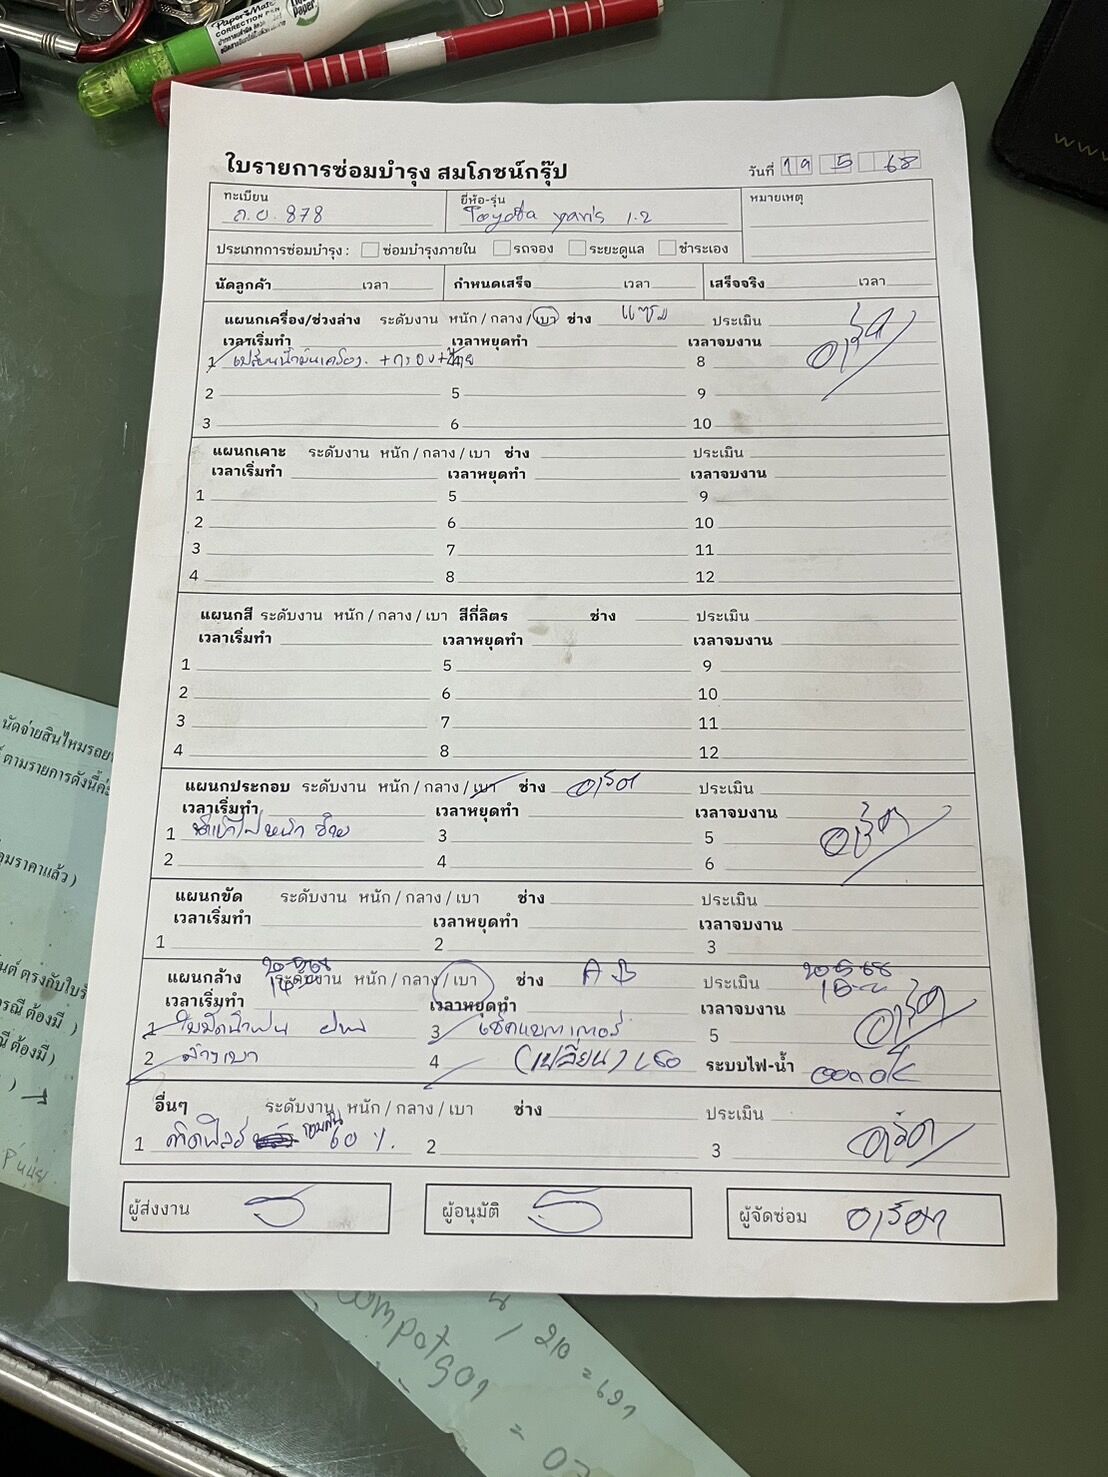 Paper Mate
CORRECTION PEN
ใบรายการซ่อมบำรุง สมโภชน์กรุ๊ป
วันที่ 19 5 68
ทะเบียน ยี่ห้อ-รุ่น หมายเหตุ
878 Toyota yaris 1.2
ประเภทการซ่อมบำรุง : ซ่อมบำรุงภายใน รถจอง ระยะดูแล ชำระเอง
นัดลูกค้า เวลา กำหนดเสร็จ เวลา เสร็จจริง เวลา
แผนกเครื่อง/ช่วงล่าง ระดับงาน หนัก / กลาง / เบา ช่าง แซม ประเมิน
เวลาเริ่มทำ เวลาหยุดทำ เวลาจบงาน
1 เปลี่ยนน้ำมันเครื่อง + กรอง + 8
2 5 9
3 6 10
แผนกเคาะ ระดับงาน หนัก / กลาง / เบา ช่าง ประเมิน
เวลาเริ่มทำ เวลาหยุดทำ เวลาจบงาน
1 5 9
2 6 10
3 7 11
4 8 12
แผนกสี ระดับงาน หนัก / กลาง / เบา สีกี่ลิตร ช่าง ประเมิน
เวลาเริ่มทำ เวลาหยุดทำ เวลาจบงาน
1 5 9
2 6 10
3 7 11
4 8 12
แผนกประกอบ ระดับงาน หนัก / กลาง / เบา ช่าง ประเมิน
เวลาเริ่มทำ เวลาหยุดทำ เวลาจบงาน
1 ไฟหน้า ซ้าย 3 5
2 4 6
แผนกขัด ระดับงาน หนัก / กลาง / เบา ช่าง ประเมิน
เวลาเริ่มทำ เวลาหยุดทำ เวลาจบงาน
1 2 3
แผนกล้าง ระดับงาน หนัก / กลาง / เบา ช่าง AB ประเมิน
เวลาเริ่มทำ เวลาหยุดทำ เวลาจบงาน
1 ใบปัดน้ำฝน 3 เช็คแบตเตอรี่ 5
2 ล้างเบา 4 (เปลี่ยน) ระบบไฟ-น้ำ OK
อื่นๆ ระดับงาน หนัก / กลาง / เบา ช่าง ประเมิน
1 ติดฟิล์ม รอบคัน 60 % 2 3
ผู้ส่งงาน ผู้อนุมัติ ผู้จัดซ่อม
นัดจ่ายสินไหมรอย
ตามรายการดังนี้ค่ะ
มราคาแล้ว )
ต้องมี )
ต้องมี )
compat
210 = 69